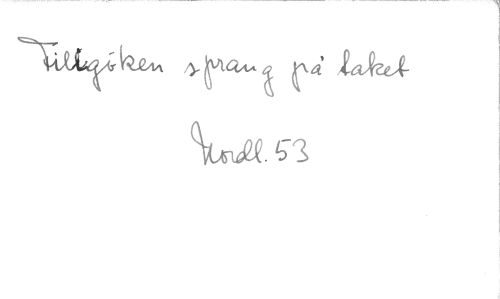 Tillgöken sprang på taket
Nordl. 53